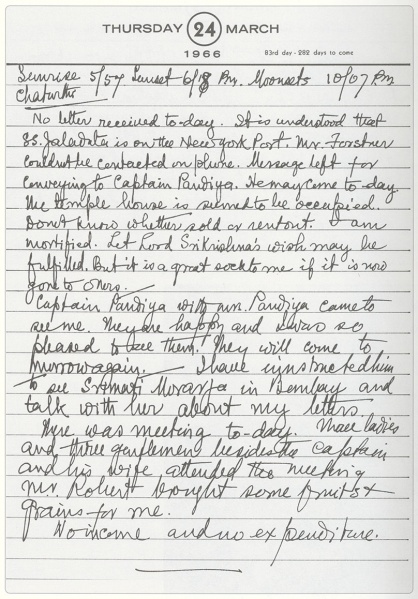 THURSDAY 24 MARCH
1966 83rd day - 282 days to come
Sunrise 5/57 Sunset 6/18 Pm. Moonsets 10/07 Pm
Chaturthi
No letter received to-day. It is understood that
SS. Jaladuta is on the New York Port. Mr. Forstner
couldn't be contacted on phone. Message left for
conveying to Captain Pandiya. He may come to-day.
The temple house is seemed to be occupied.
Don't know whether sold or rent out. I am
mortified. Let Lord Sri Krishna's wish may be
fulfilled. But it is a great sock to me if it is now
gone to others.
Captain Pandiya with mrs. Pandiya came to
see me. They are happy and I was so
pleased to see them. They will come to
morrow again. I have instructed him
to see Srimati Morarja in Bombay and
talk with her about my letters.
There was meeting to-day. Three ladies
and three gentlemen besides the Captain
and his wife attended the meeting
Mr. Robert brought some fruits &
grains for me.
No income and no expenditure.